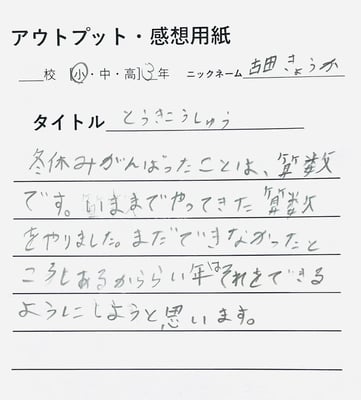 アウトプット・感想用紙
___校 小・中・高 3年 ニックネーム 古田きょうか
タイトル とうきこうしゅう
冬休みがんばったことは、算数
です。いままでやってきた算数
をやりました。まだできなかったと
ころもあるかららい年はそれをできる
ようにしようと思います。